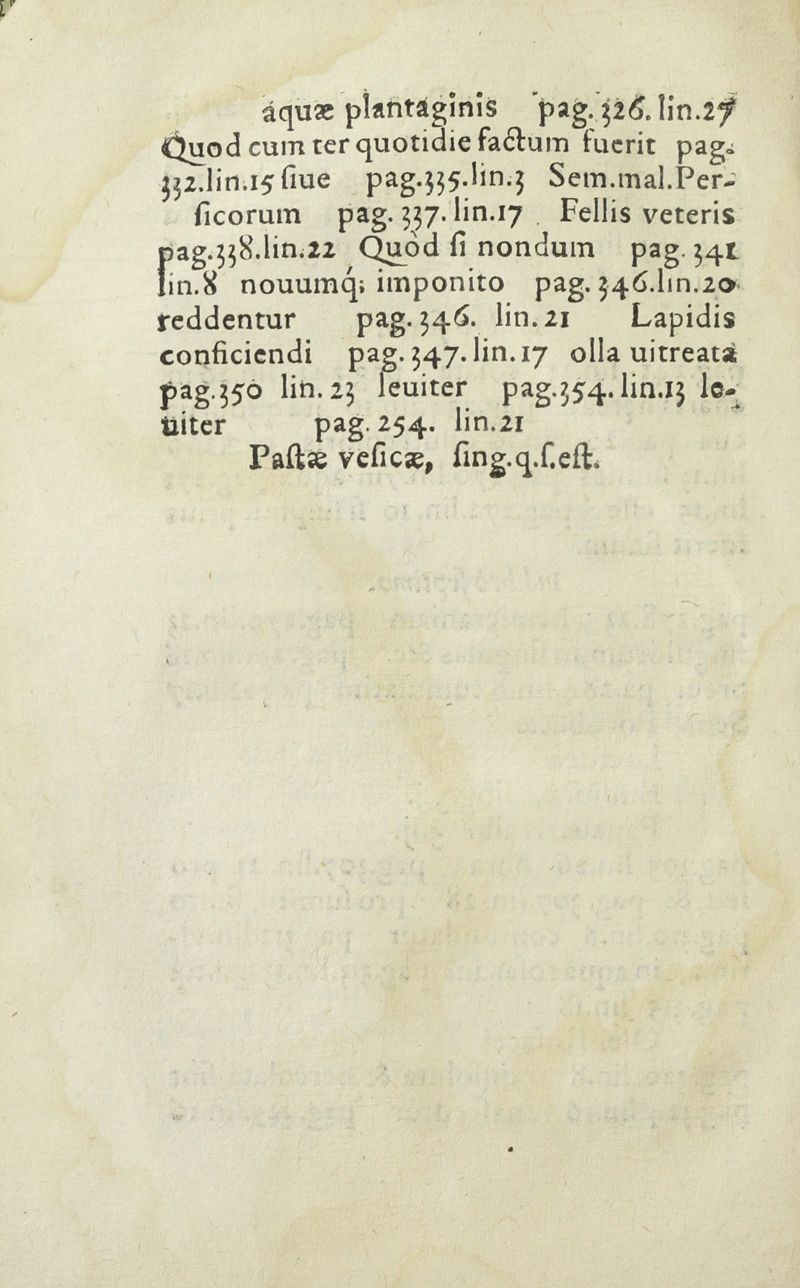 aquæ plantaginis pag. 326. lin.27
Quod cum ter quotidie factum fuerit pag.
332.lin.15 siue pag.335.lin.3 Sem.mal.Per-
sicorum pag. 337. lin.17 Fellis veteris
pag.338.lin.22 Quòd si nondum pag. 341
lin.8 nouumq; imponito pag. 346.lin.20
reddentur pag. 346. lin. 21 Lapidis
conficiendi pag. 347. lin. 17 olla uitreata
pag.350 lin. 23 leuiter pag.354. lin.13 le-
uiter pag. 254. lin.21
Pastæ vesicæ, sing.q.s.est.